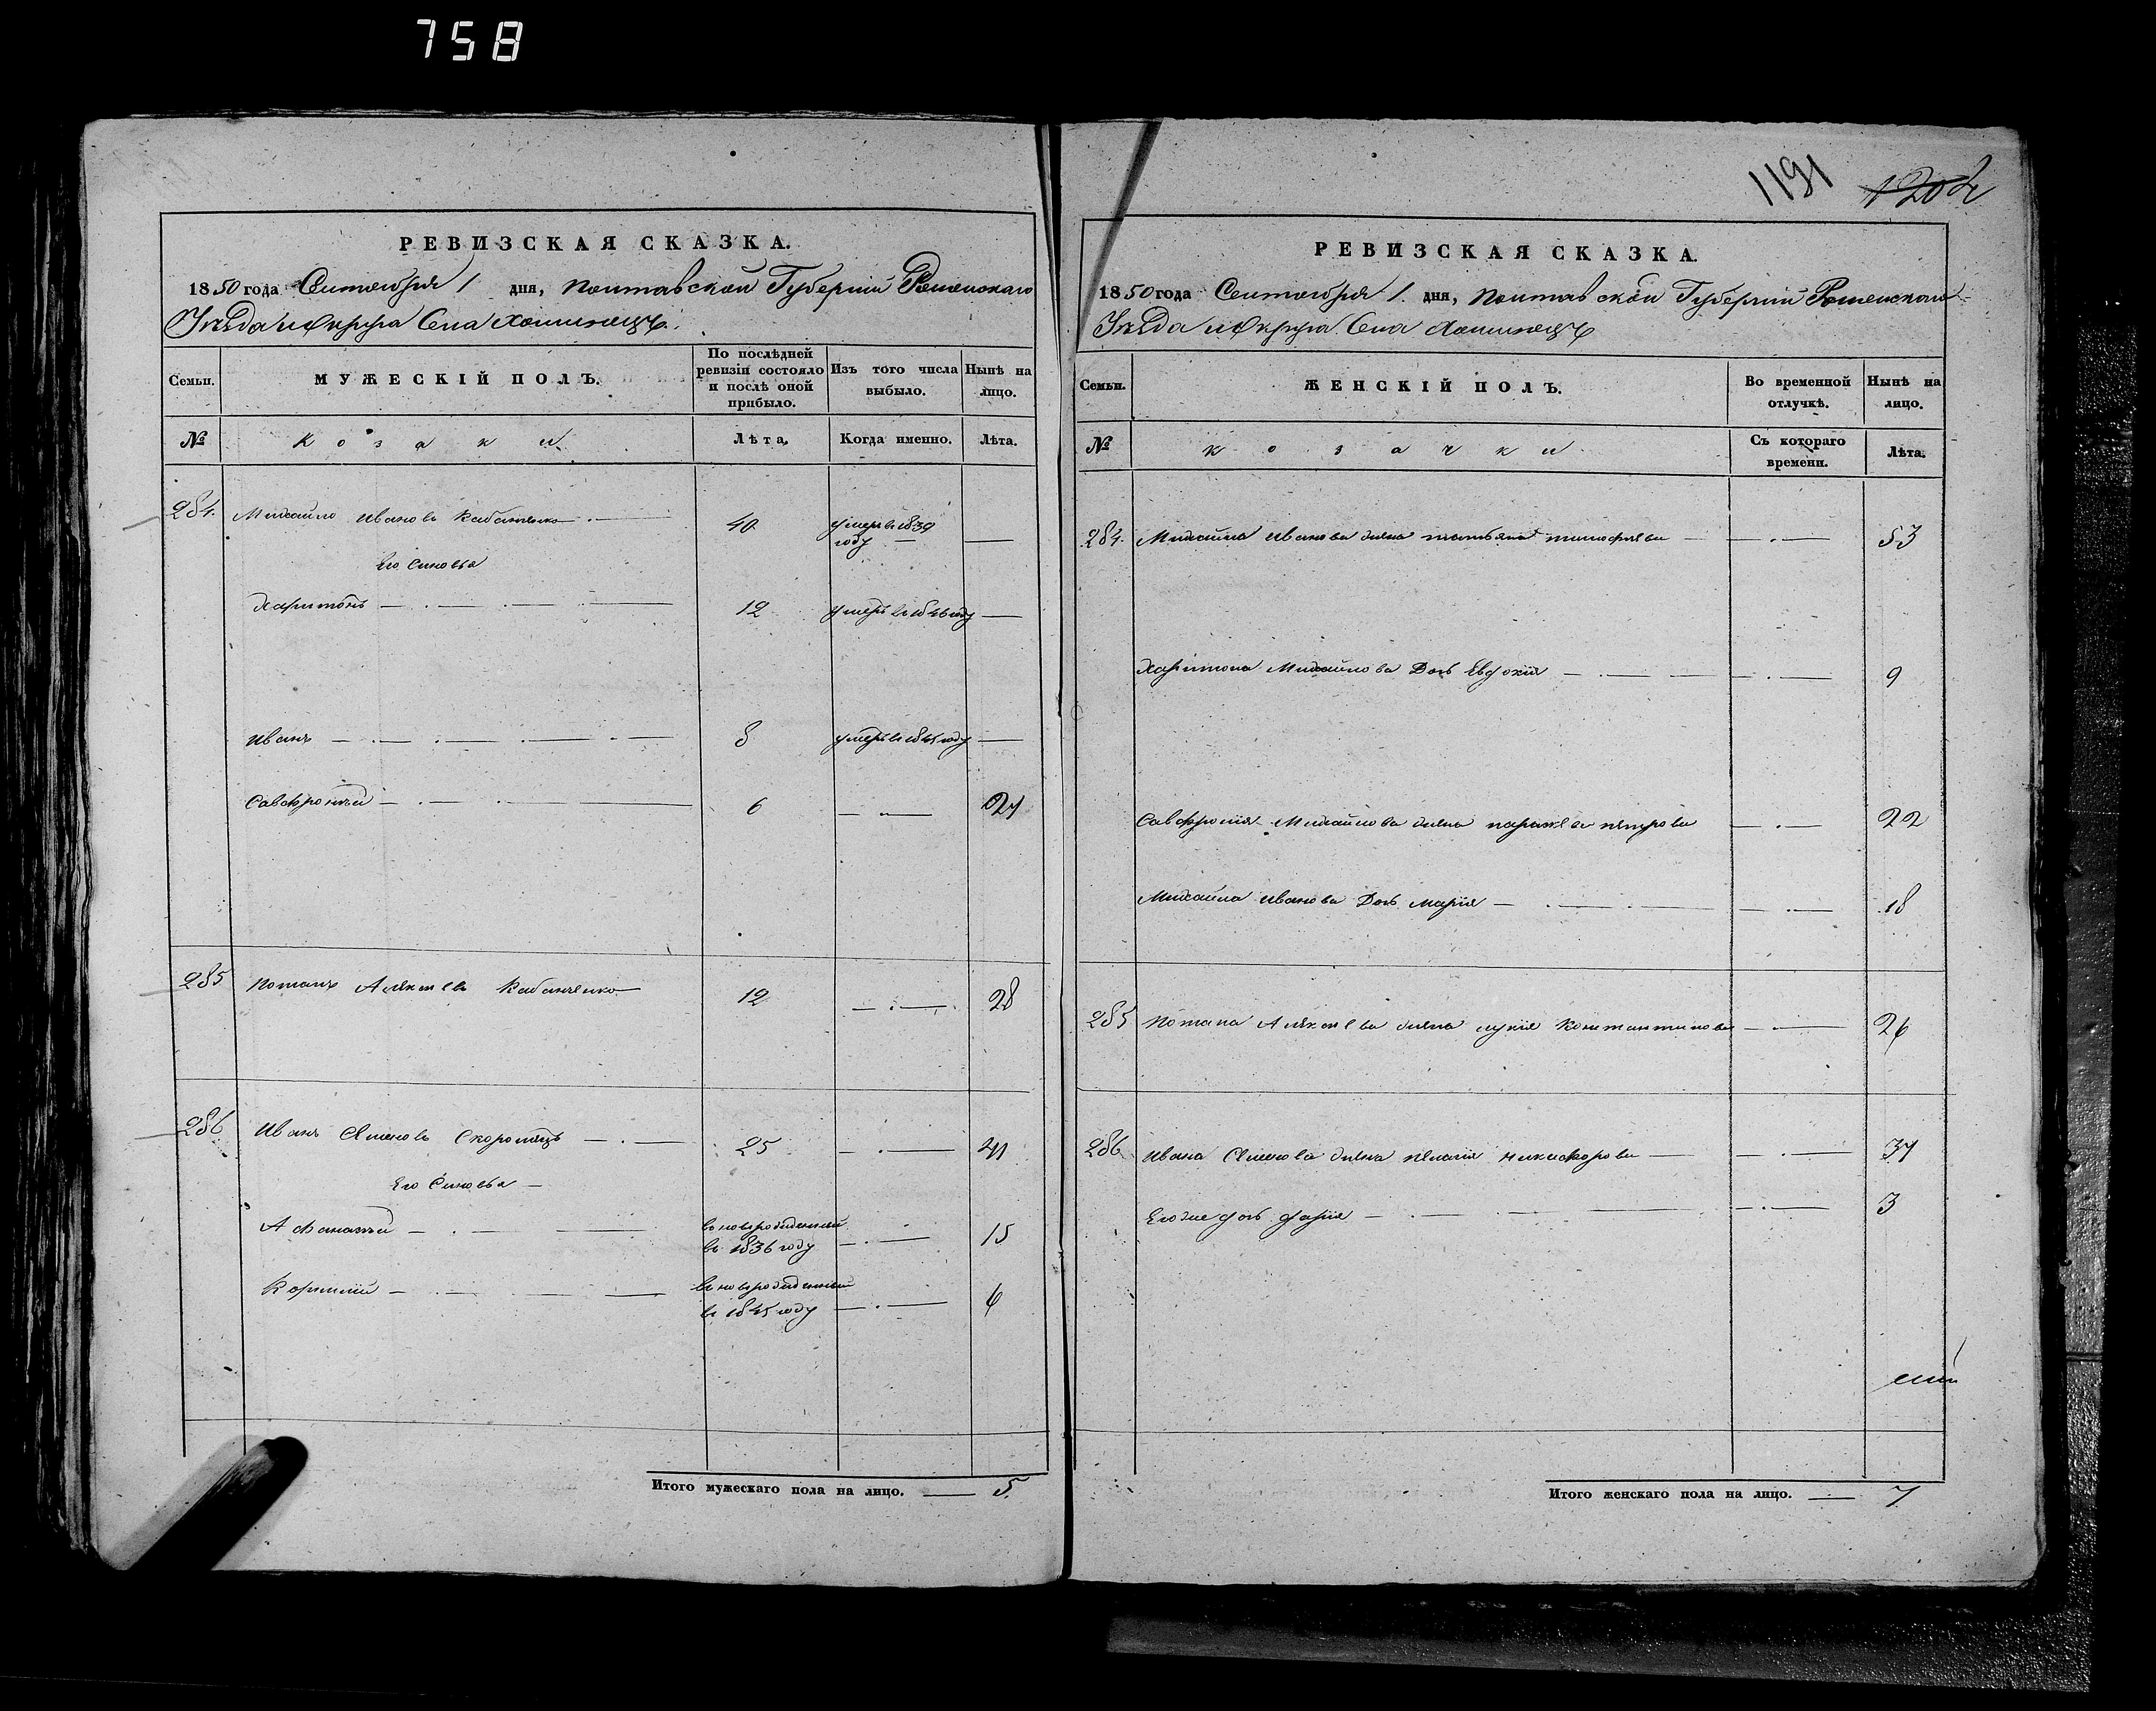 758
РЕВИЗСКАЯ СКАЗКА.
1850 года Сентября 1 дня, Полтавской Губерніи Роменскаго
Уѣзда и Округа Села
Семьи.
МУЖЕСКІЙ ПОЛЪ.
По послѣдней ревизіи состояло и послѣ оной прибыло.
Изъ того числа выбыло.
Нынѣ на лицо.
№
козаки
Лѣта.
Когда именно.
Лѣта.
284. Михайло Ивановъ Кабанченко 40. умеръ в 1839 году
Его Синовья
Харитонъ 12 умеръ в 1846 году
Иванъ 8 умеръ в 1845 году
Савфроній 6
285 Потапъ Алексѣевъ Кабанченко 12 28
286 Иванъ Семеновъ 25 41
Его Синовья
Афанасій вновьрожденный в 1836 году 15
Корнилій вновьрожденный в 1845 году 6
Итого мужескаго пола на лицо. 5.
1191 1202
РЕВИЗСКАЯ СКАЗКА.
1850 года Сентября 1. дня, Полтавской Губерніи Роменскаго
Уѣзда и Округа Села
Семьи.
ЖЕНСКІЙ ПОЛЪ.
Во временной отлучкѣ.
Нынѣ на лицо.
№
козачки
Съ котораго времени.
Лѣта.
284. Михайла Иванова жена Татьяна Тимофеева 53
Харитона Михайлова Дочь Евдокія 9
Савфронія Михайлова жена Параскева Петрова 22
Михайла Иванова Дочь Марія 18
285 Потапа Алексѣева жена Лукія Константинова 26
286 Ивана Семенова жена Пелагія Никифорова 37
Его же дочь 3
Итого женскаго пола на лицо. 7